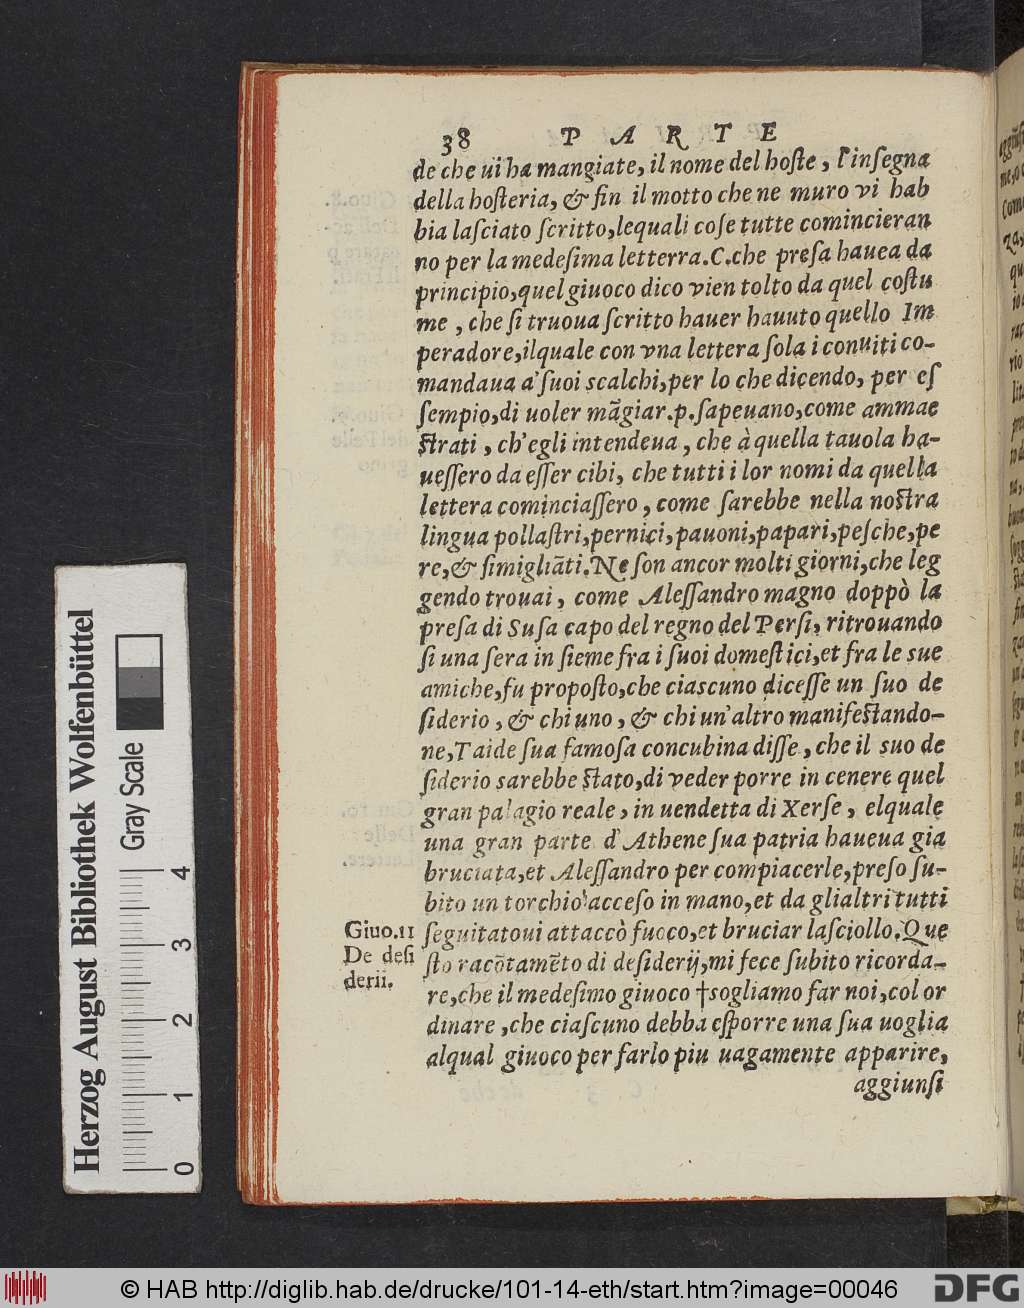 38 PARTE
de che ui ha mangiate, il nome del hoſte, l'inſegna
della hoſteria, & fin il motto che ne muro vi hab
bia laſciato ſcritto, lequali coſe tutte comincieran
no per la medeſima letterra.C.che preſa hauea da
principio, quel giuoco dico vien tolto da quel coſtu
me, che ſi truoua ſcritto hauer hauuto quello Im
peradore, ilquale con vna lettera ſola i conuiti co-
mandaua a' ſuoi scalchi, per lo che dicendo, per eſ
ſempio, di uoler mãgiar.p.ſapeuano, come ammae
ſtrati, ch'egli intendeua, che à quella tauola ha-
ueſſero da eſſer cibi, che tutti i lor nomi da quella
lettera cominciaſſero, come ſarebbe nella noſtra
lingua pollaſtri, pernici, pauoni, papari, peſche, pe
re, & ſimigliãti. Ne ſon ancor molti giorni, che leg
gendo trouai, come Aleſſandro magno doppò la
preſa di Suſa capo del regno del Perſi, ritrouando
ſi una ſera in ſieme fra i ſuoi domeſtici, et fra le sue
amiche, fu propoſto, che ciascuno diceſſe un ſuo de
ſiderio, & chi uno, & chi un'altro manifeſtando-
ne, Taide ſua famoſa concubina diſſe, che il suo de
ſiderio sarebbe ſtato, di veder porre in cenere quel
gran palagio reale, in uendetta di Xerſe, elquale
una gran parte d'Athene ſua patria haueua gia
bruciata, et Aleſſandro per compiacerle, preſo ſu-
bito un torchio acceſo in mano, et da glialtri tutti
Giuo.11
De deſi
derii.
ſeguitatoui attaccò fuoco, et bruciar laſciollo. Que
ſto racõtamẽto di deſiderij, mi fece ſubito ricorda-
re, che il medeſimo giuoco †sogliamo far noi, col or
dinare, che ciaſcuno debba eſporre una ſua uoglia
alqual giuoco per farlo piu uagamente apparire,
aggiunſi
Herzog August Bibliothek Wolfenbüttel
Gray Scale
0 1 2 3 4
© HAB http://diglib.hab.de/drucke/101-14-eth/start.htm?image=00046
DFG